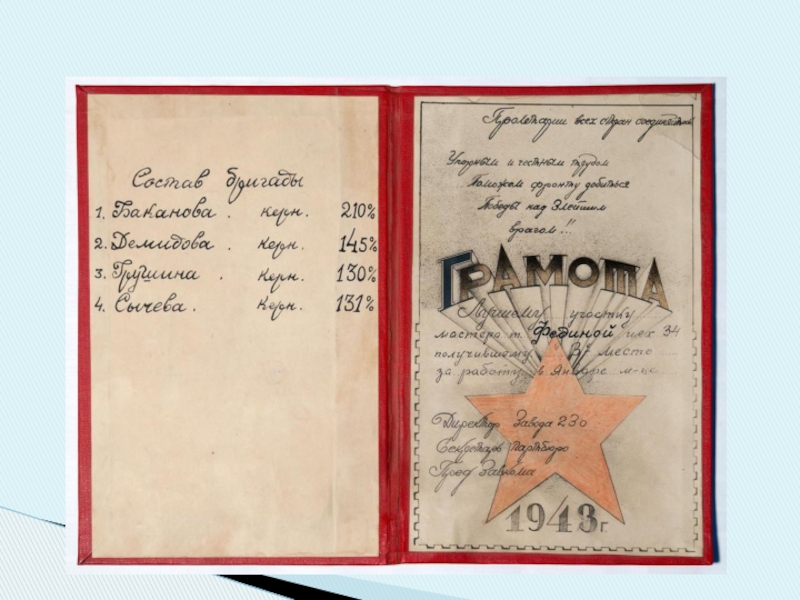 Состав бригады
1. Баканова . керн. 210%
2. Демидова . керн. 145%
3. Грушина . керн. 130%
4. Сычева . керн. 131%
Пролетарии всех стран соединяйтесь
Упорным и честным трудом
Поможем фронту добиться
Победы над Злейшим
врагом!!
ГРАМОТА
Лучшему участку
мастера т. Фединой цех 34
получившему место
за работу в Январе м-це
Директор Завода 230
Секретарь Партбюро
Пред Завкома
1943г.